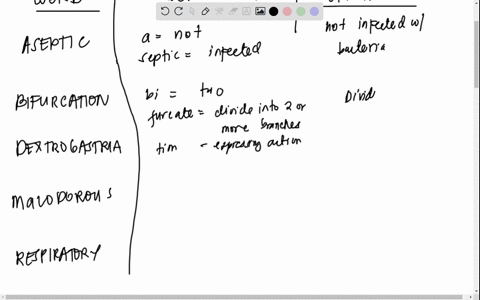 ASEPTIC
a = not
septic = infected
not infected w/
bacteria
BIFURCATION
bi = two
furcate = divide into 2 or
more branches
tion - expressing action
Divid
DEXTROGASTRIA
MALODOROUS
RESPIRATORY